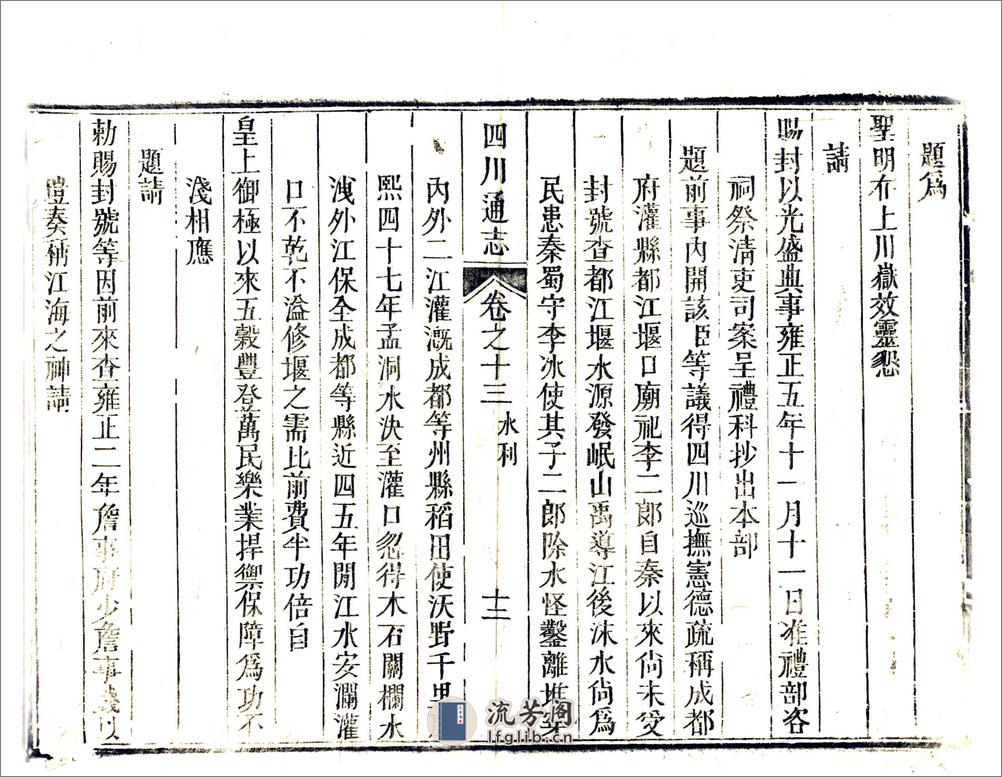 題爲
聖明在上川嶽效靈懇
請
賜封以光盛典事雍正五年十一月十一日准禮部咨
祠祭清吏司案呈禮科抄出本部
題前事内開該臣等議得四川巡撫憲德疏稱成都
府灌縣都江堰口廟祀李二郎自秦以來尚未受
封號查都江堰水源發岷山禹導江後沫水尚爲
民患秦蜀守李冰使其子二郎除水怪鑿離堆
四川通志 卷之十三 水利 十二
内外二江灌溉成都等州縣稻田使沃野千里
熙四十七年孟洞水決至灌口忽得木石關欄水
洩外江保全成都等縣近四五年間江水安瀾灌
口不乾不溢修堰之需比前費半功倍自
皇上御極以來五穀豐登萬民樂業捍禦保障爲功不
淺相應
題請
勅賜封號等因前來查雍正二年詹事府少詹事錢以
愷奏稱江海之神請
流芳阁
lfglib.com.cn